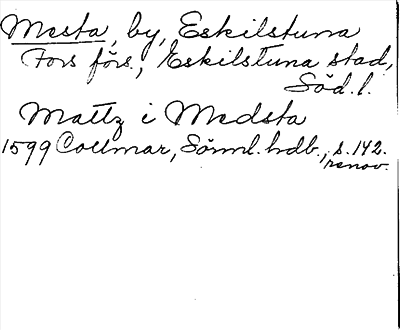 Mesta, by, Eskilstuna
Fors förs., Eskilstuna stad,
Söd. l.
Mattz i Medsta
1599 Collmar, Sörml. hdb., s. 142.
renov.